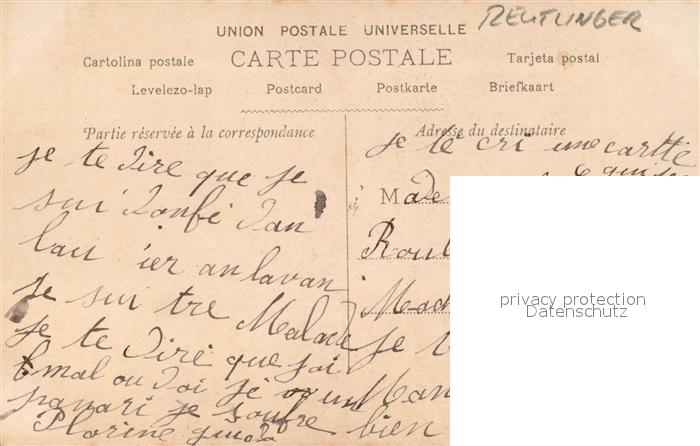 REUTLINGER
UNION POSTALE UNIVERSELLE
CARTE POSTALE
Cartolina postale
Tarjeta postal
Levelezo-lap
Postcard
Postkarte
Briefkaart
Partie réservée à la correspondance
Adresse du destinataire
je te dire que je
sui tonbé dan
lau ier an lavan
je sui tre Malade
je te dire que jai
mal ou doi jé un
panari je soufre
Florine
je te cri une cartte
Made
Roul
Mad
je
Man
bien
privacy protection
Datenschutz